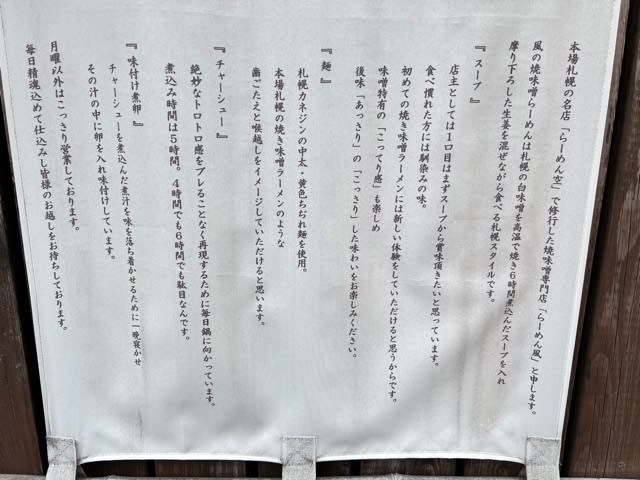 本場札幌の名店「らーめん空」で修行した焼味噌専門店「らーめん風」と申します。
風の焼味噌らーめんは札幌の白味噌を高温で焼き6時間煮込んだスープを入れ
摩り下ろした生姜を混ぜながら食べる札幌スタイルです。
『スープ』
店主としては1口目はまずスープから賞味頂きたいと思っています。
食べ慣れた方には馴染みの味。
初めての焼き味噌ラーメンには新しい体験をしていただけると思うからです。
味噌特有の「こってり感」も楽しめ
後味「あっさり」の「こっさり」した味わいをお楽しみください。
『麺』
札幌カネジンの中太・黄色ちぢれ麺を使用。
本場札幌の焼き味噌ラーメンのような
歯ごたえと喉越しをイメージしていただけると思います。
『チャーシュー』
絶妙なトロトロ感をブレることなく再現するために毎日鍋に向かっています。
煮込み時間は5時間。4時間でも6時間でも駄目なんです。
『味付け煮卵』
チャーシューを煮込んだ煮汁を味を落ち着かせるために一晩寝かせ
その汁の中に卵を入れ味付けしています。
月曜以外はこっさり営業しております。
毎日精魂込めて仕込みし皆様のお越しをお待ちしております。